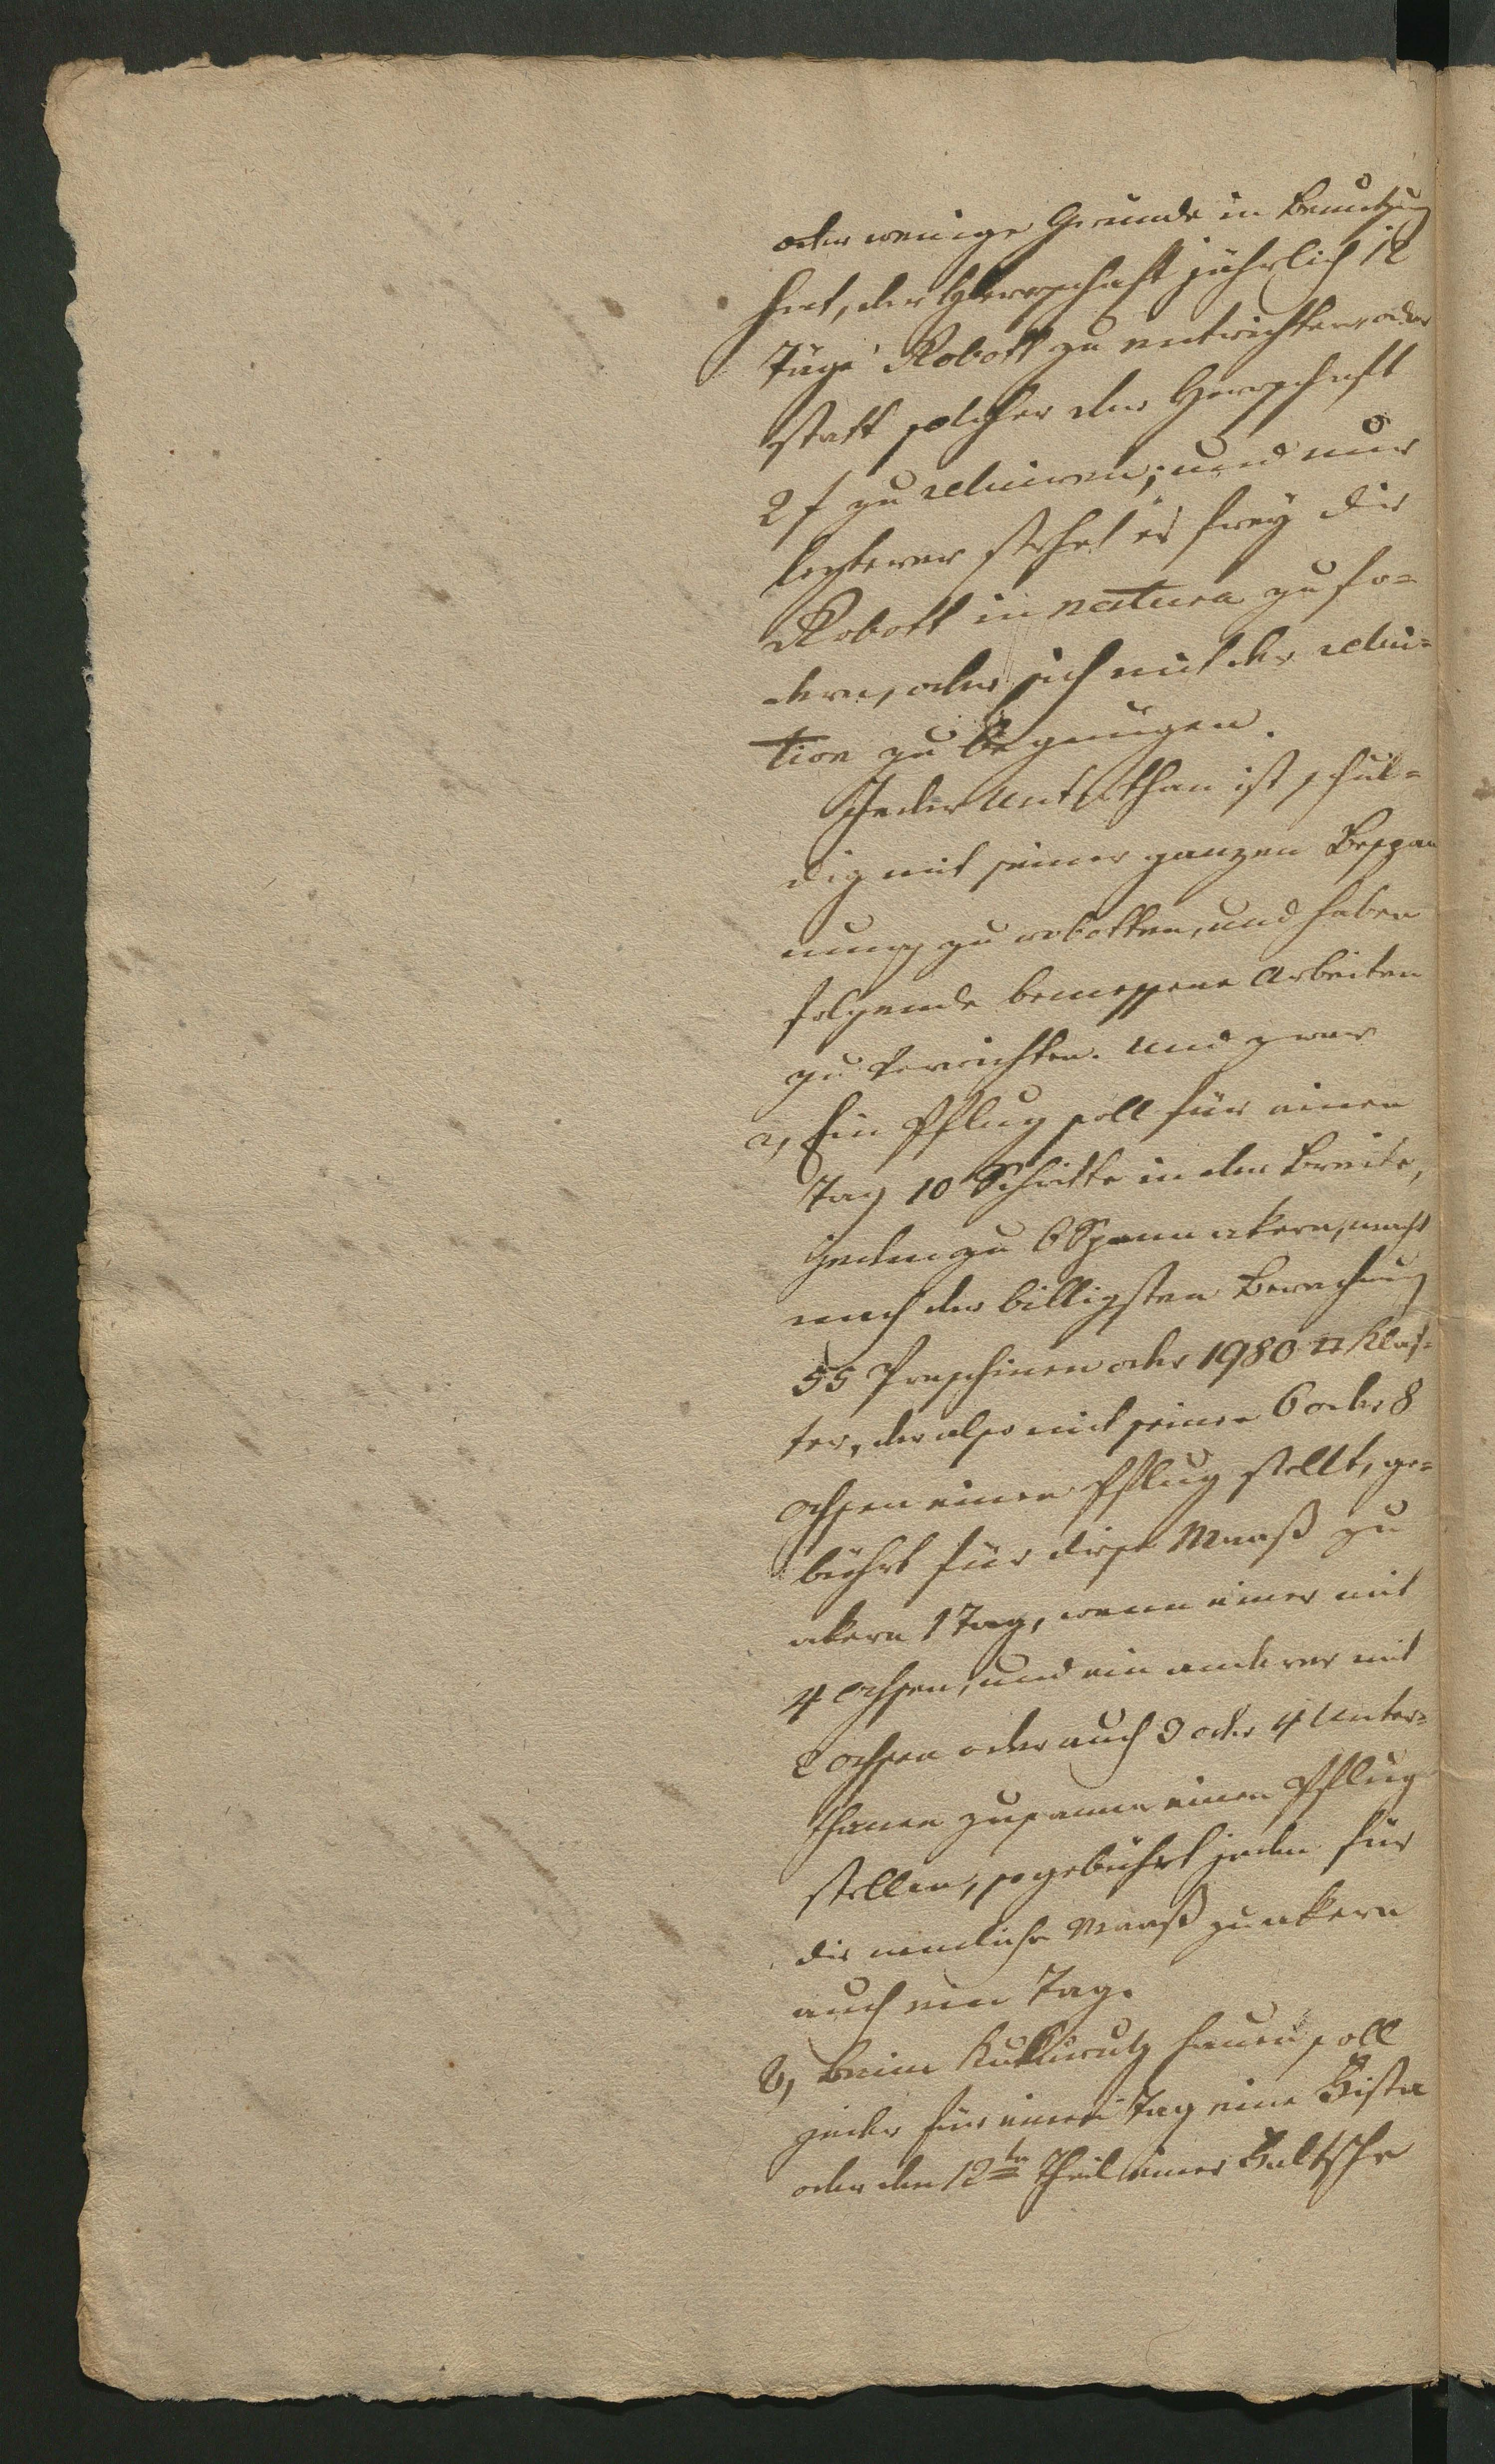 oder wenige Grunde in Benutzung
hat, der Herrschaft jährlich 12
Täge Robott zu entrichten, oder
statt solcher der Herrschaft
2 f zu reluiren; und nur
lezterer stehet es frey die
Robott in natura zu fo-
dern, oder sich mit der relui-
tion zu begnügen.
Jeder Unterthan ist schul-
dig mit seiner ganzen Bespan
nung zu robotten, und haben
folgende bemessene Arbeiten
zu verrichten. Und zwar
a, Ein Pflug soll für einen
Tag 10 Schritte in der Breite,
jeden zu 6 Spann akern, macht
nach der billigsten Berechnung
55 Praschinen oder 1980 □ Klaf-
ter, der also mit seinen 6 oder 8
Ochsen einen Pflug stellt, ge-
bührt für diese Maaß zu
akern 1 Tag, wenn einer mit
4 Ochsen, und ein anderer mit
2 Ochsen oder auch 3 oder 4 Unter-
thanen zusamen einen Pflug
stellen, so gebührt jeden für
die nemliche Maaß zu akern
auch ein Tag.
b, Beim Kukurutz hauen soll
jeder für einen Tag eine Hista
oder den 12ten Theil einer Faltsche